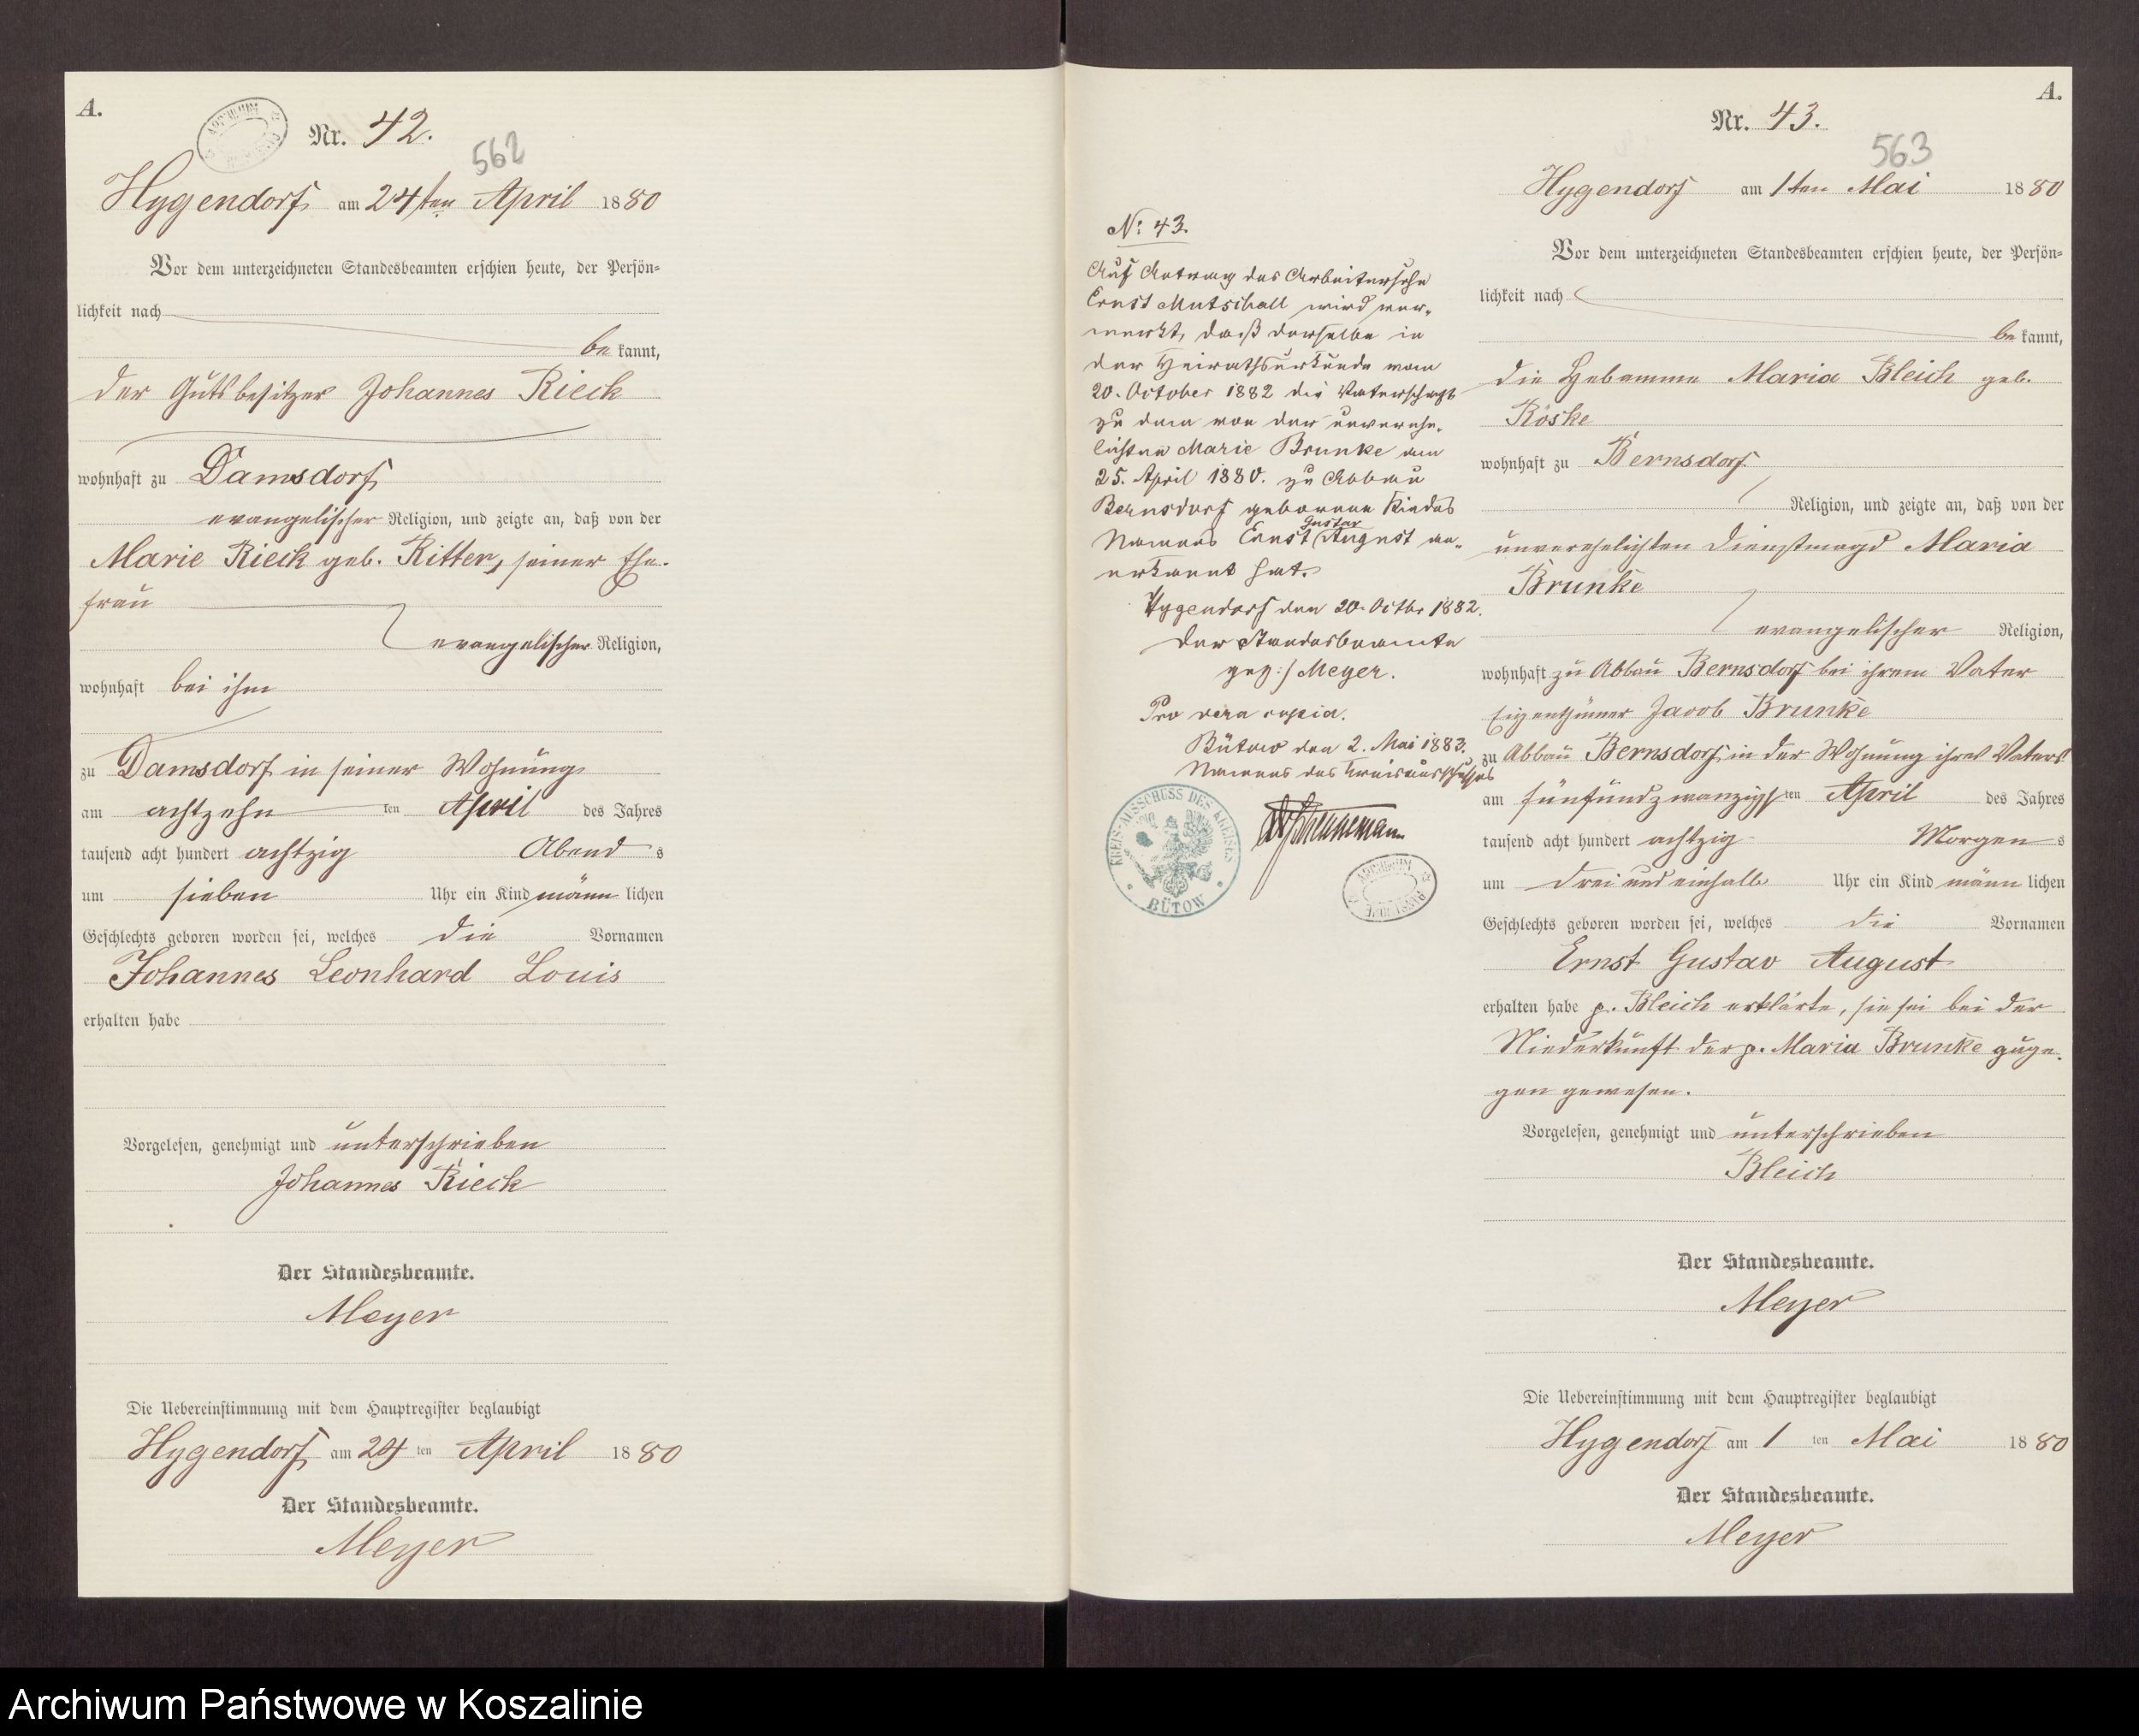 A.
Nr. 42.
562
Hygendorf am 24ten April 1880
Vor dem unterzeichneten Standesbeamten erschien heute, der Persön-
lichkeit nach
be kannt,
der Gutsbesitzer Johannes Rieck
wohnhaft zu Damsdorf
evangelischer Religion, und zeigte an, daß von der
Marie Rieck geb. Ritter, seiner Ehe-
frau
evangelischer Religion,
wohnhaft bei ihm
zu Damsdorf in seiner Wohnung
am achtzehn ten April des Jahres
tausend acht hundert achtzig Abend s
um sieben Uhr ein Kind männ lichen
Geschlechts geboren worden sei, welches die Vornamen
Johannes Leonhard Louis
erhalten habe
Vorgelesen, genehmigt und unterschrieben
Johannes Rieck
Der Standesbeamte.
Meyer
Die Uebereinstimmung mit dem Hauptregister beglaubigt
Hygendorf am 24 ten April 1880
Der Standesbeamte.
Meyer
No: 43.
Auf Antrag des Arbeitersohn
Ernst Mutschall wird ver-
merkt, daß derselbe in
der Heirathsurkunde vom
20. October 1882 die Vaterschaft
zu dem von der unverehe-
lichten Marie Brunke am
25. April 1880. zu Abbau
Bernsdorf geborenen Kindes
Namens Ernst Gustav August an-
erkannt hat.
Hygendorf den 20. Octbr 1882.
Der Standesbeamte
gez:/ Meyer.
Pro vera copia.
Bütow den 2. Mai 1883.
Namens des Kreisausschusses
KREIS-AUSSCHUSS DES KREISES
BÜTOW
A.
Nr. 43.
563
Hygendorf am 1ten Mai 1880
Vor dem unterzeichneten Standesbeamten erschien heute, der Persön-
lichkeit nach
be kannt,
die Hebamme Maria Bleich geb.
Röske
wohnhaft zu Bernsdorf
Religion, und zeigte an, daß von der
unverehelichten Dienstmagd Maria
Brunke
evangelischer Religion,
wohnhaft zu Abbau Bernsdorf bei ihrem Vater
Eigenthümer Jacob Brunke
zu Abbau Bernsdorf in der Wohnung ihres Vaters
am fünfundzwanzigsten April des Jahres
tausend acht hundert achtzig Morgen s
um drei und einhalb Uhr ein Kind männ lichen
Geschlechts geboren worden sei, welches die Vornamen
Ernst Gustav August
erhalten habe p. Bleich erklärte, sie sei bei der
Niederkunft der p. Maria Brunke zuge-
gen gewesen.
Vorgelesen, genehmigt und unterschrieben
Bleich
Der Standesbeamte.
Meyer
Die Uebereinstimmung mit dem Hauptregister beglaubigt
Hygendorf am 1 ten Mai 1880
Der Standesbeamte.
Meyer
Archiwum Państwowe w Koszalinie